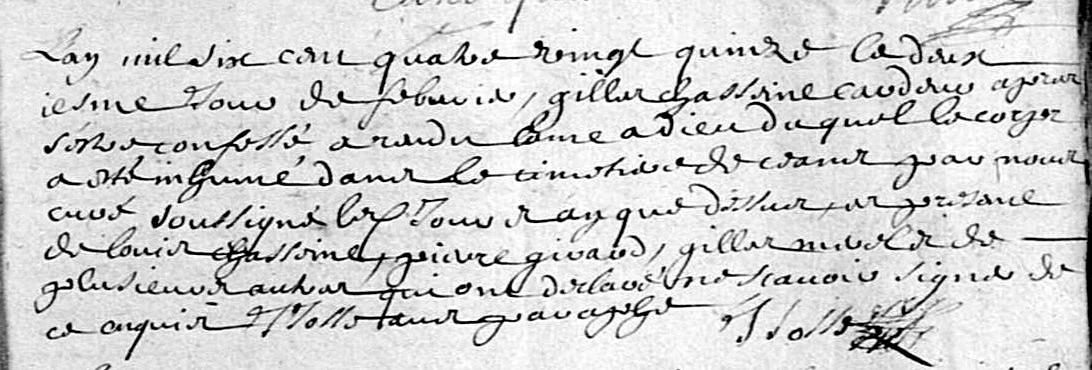 Lan mil six cent quatre vingt quinze le deux
iesme Jour de febvrie, gilles Chasseine cardeur apres
sestre confessé a rendu lame a dieu duquel le corps
a esté inhumé dans le cimetiere de ceans par nous
curé soussigné les Jour et an que dessus, en presance
de louis Chasseine, pierre giraud, gilles et de
plusieurs autres qui ont declaré ne scavoir signe de
ce enquis